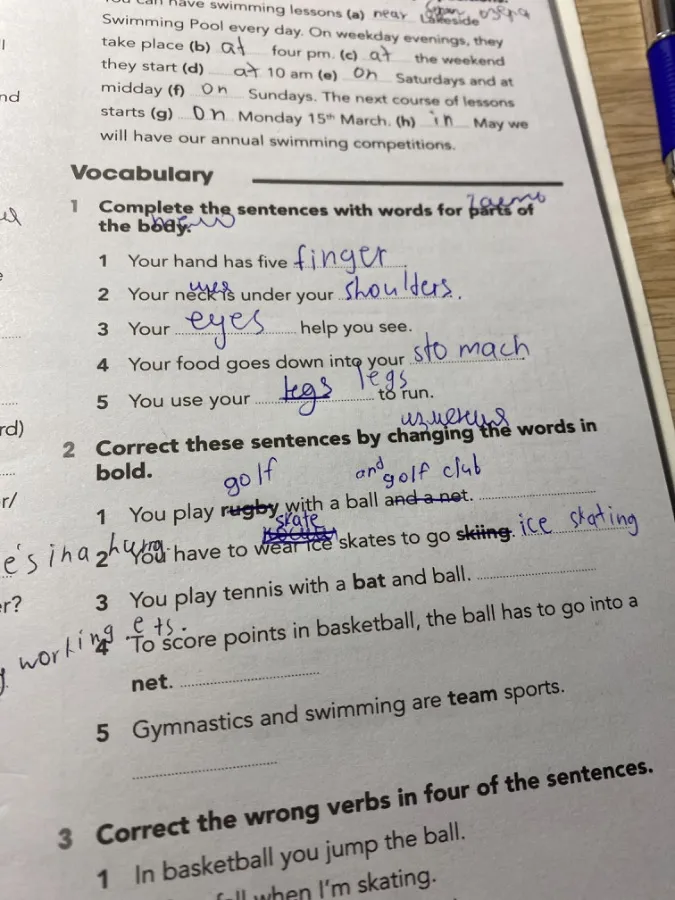 You can have swimming lessons (a) near Lakeside
Swimming Pool every day. On weekday evenings, they
take place (b) at four pm. (c) at the weekend
they start (d) at 10 am (e) On Saturdays and at
midday (f) On Sundays. The next course of lessons
starts (g) On Monday 15th March. (h) in May we
will have our annual swimming competitions.
Vocabulary
1 Complete the sentences with words for parts of
the body.
1 Your hand has five finger
2 Your neck is under your shoulders.
3 Your eyes help you see.
4 Your food goes down into your stomach
legs
5 You use your legs to run.
2 Correct these sentences by changing the words in
bold.
golf and golf club
1 You play rugby with a ball and a net.
skate
2 You have to wear ice skates to go skiing. ice skating
3 You play tennis with a bat and ball.
4 To score points in basketball, the ball has to go into a
net.
5 Gymnastics and swimming are team sports.
3 Correct the wrong verbs in four of the sentences.
1 In basketball you jump the ball.
fall when I'm skating.
nd
rd)
er/
er?
working